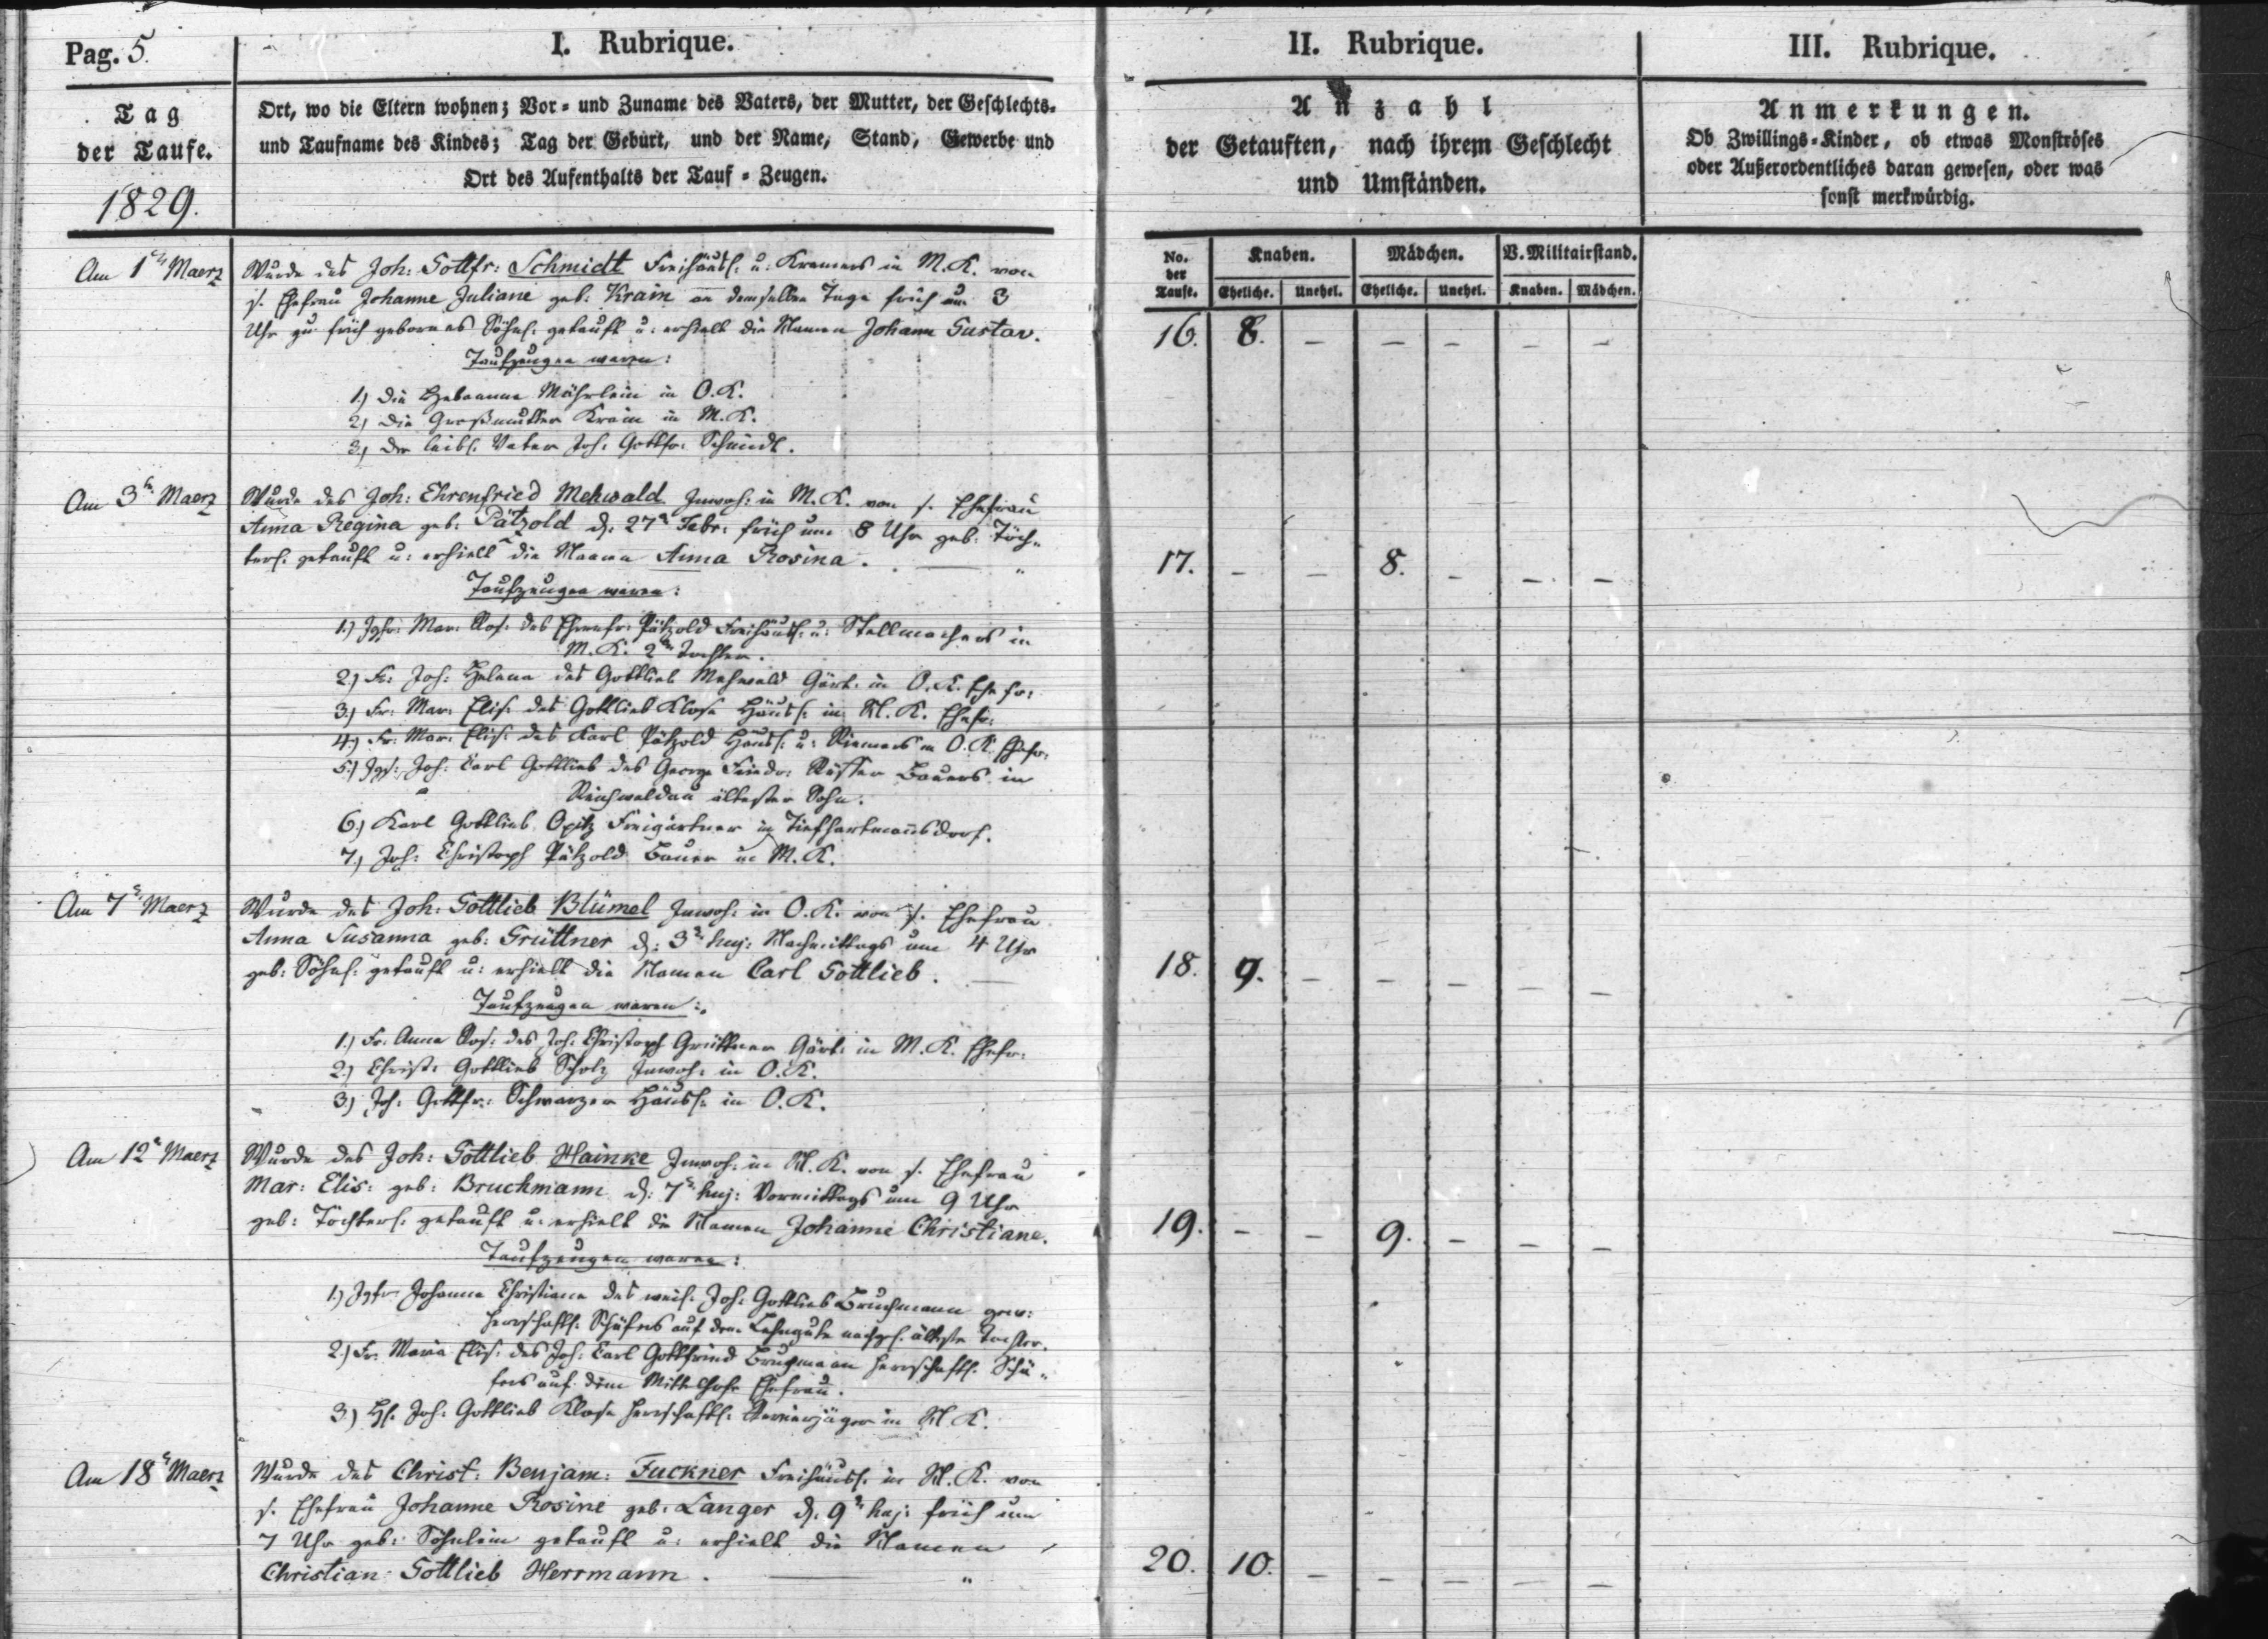 Pag. 5.
I. Rubrique.
II. Rubrique.
III. Rubrique.
Tag
der Taufe.
1829.
Ort, wo die Eltern wohnen; Vor- und Zuname des Vaters, der Mutter, der Geschlechts-
und Taufname des Kindes; Tag der Geburt, und der Name, Stand, Gewerbe und
Ort des Aufenthalts der Tauf-Zeugen.
Anzahl
der Getauften, nach ihrem Geschlecht
und Umständen.
Anmerkungen.
Ob Zwillings-Kinder, ob etwas Monströses
oder Außerordentliches daran gewesen, oder was
sonst merkwürdig.
No. der Taufe.
Knaben. Mädchen. V. Militairstand.
Eheliche. Unehel. Eheliche. Unehel. Knaben. Mädchen.
Am 1t Maerz
Wurde des Joh: Gottfr: Schmidt Freihäusl: u: Kramers in M. K. von
s. Ehefrau Johanne Juliane geb: Krain an demselben Tage früh um 3
Uhr zu früh gebornes Söhnl: getauft u: erhielt die Namen Johann Gustav.
16. 8. – – – – –
Taufzeugen waren:
1.) Die Hebamme Mährlein in O. K.
2.) Die Großmutter Krain in M. K.
3.) Der leibl. Vater Joh: Gottfr: Schmidt.
Am 3t Maerz
Wurde des Joh: Ehrenfried Mehwald Inwoh: in M. K. von s. Ehefrau
Anna Regina geb: Pätzold d. 27t Febr: früh um 8 Uhr geb: Töch-
terl. getauft u: erhielt die Namen Anna Rosina.
17. – – 8. – – –
Taufzeugen waren:
1.) Jgfr: Mar: Ros: des Ehrenfr: Pätzold Freihäusl: u: Stellmachers in
M. K. 2te Tochter.
2.) Fr: Joh: Helena des Gottlieb Mehwald Gärt: in O. K. Ehefr:
3.) Fr: Mar: Elis: des Gottlieb Klose Häusl: in M. K. Ehefr:
4.) Fr: Mar: Elis: des Karl Pätzold Häusl: u: Riemers in O. K. Ehefr:
5.) Jgs: Joh: Carl Gottlieb des George Friedr: Bauers in
Reichwaldau ältester Sohn.
6.) Karl Gottlieb Opitz Freigärtner in Tiefhartmansdorf.
7.) Joh: Christoph Pätzold Bauer in M. K.
Am 7t Maerz
Wurde des Joh: Gottlieb Blümel Inwoh: in O. K. von s. Ehefrau
Anna Susanna geb: Grüttner d: 3t huj: Nachmittags um 4 Uhr
geb: Söhnl: getauft u: erhielt die Namen Carl Gottlieb.
18. 9. – – – – –
Taufzeugen waren:
1.) Fr: Anna Ros: des Joh: Christoph Grüttner Gärt: in M. K. Ehefr:
2.) Christ: Gottlieb Scholz Inwoh: in O. K.
3.) Joh: Gottfr: Schwarzer Häusl: in O. K.
Am 12t Maerz
Wurde des Joh: Gottlieb Hainke Inwoh: in M. K. von s. Ehefrau
Mar: Elis: geb: Bruchmann d: 7t huj: Vormittags um 9 Uhr
geb: Töchterl: getauft u: erhielt die Namen Johanne Christiane.
19. – – 9. – – –
Taufzeugen waren:
1.) Jgfr: Johanne Christiane des weil: Joh: Gottlieb Bruchmann gew:
herrschaftl: Schäfers auf dem Lehngute nachgel: älteste Tochter.
2.) Fr: Maria Elis: des Joh: Carl Gottfried Bruchmann herrschaftl: Schä-
fers auf dem Mittelhofe Ehefrau.
3.) H: Joh: Gottlieb Klose herrschaftl: Revierjäger in M. K.
Am 18t Maerz
Wurde des Christ: Benjam: Fuckner Freihäusl: in M. K. von
s. Ehefrau Johanne Rosine geb: Langer d: 9t huj: früh um
7 Uhr geb: Söhnlein getauft u: erhielt die Namen
Christian Gottlieb Herrmann.
20. 10. – – – – –